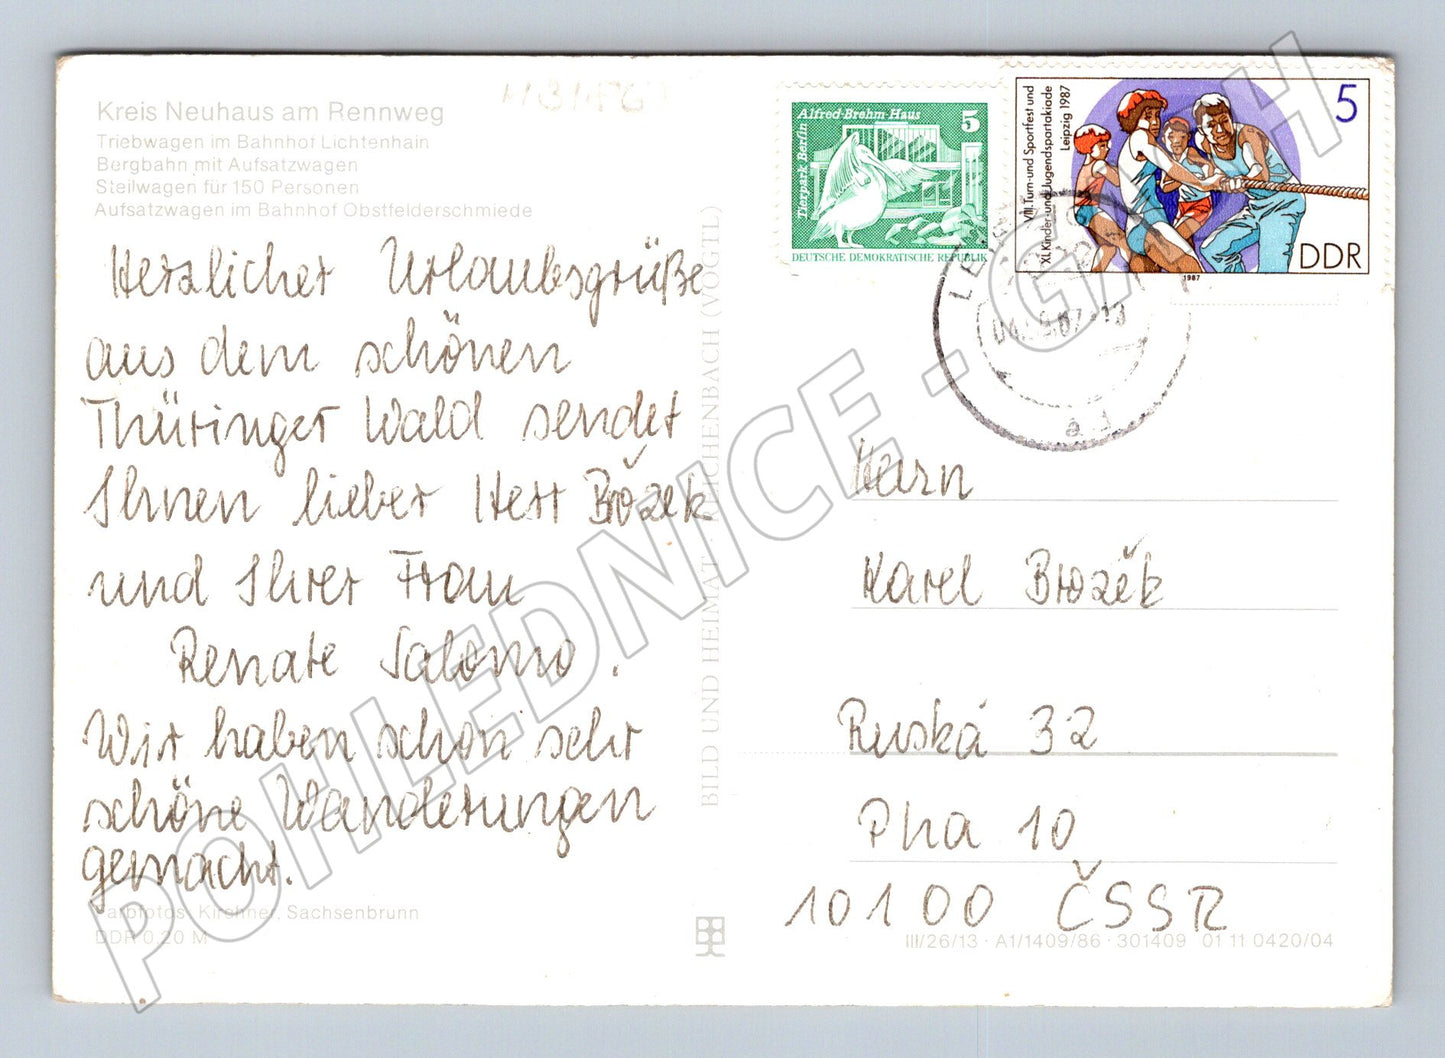 Kreis Neuhaus am Rennweg
Triebwagen im Bahnhof Lichtenhain
Bergbahn mit Aufsatzwagen
Steilwagen für 150 Personen
Aufsatzwagen im Bahnhof Obstfelderschmiede
Herzlicher Urlaubsgrüße
aus dem schönen
Thüringer Wald sendet
Ihnen lieber Herr Brožek
und Ihrer Frau
Renate Salomo.
Wir haben schon sehr
schöne Wanderungen
gemacht.
Farbfotos: Kirchner, Sachsenbrunn
DDR 0,20 M
BILD UND HEIMAT · REICHENBACH (VOGTL)
Tierpark Berlin
Alfred-Brehm-Haus
5
DEUTSCHE DEMOKRATISCHE REPUBLIK
VIII. Turn- und Sportfest und
XI. Kinder- und Jugendspartakiade
Leipzig 1987
5
DDR
1987
Herrn
Karel Brožek
Ruská 32
Pha 10
10100 ČSSR
III/26/13 · A1/1409/86 · 301409 01 11 0420/04
POHLEDNICE - GZH